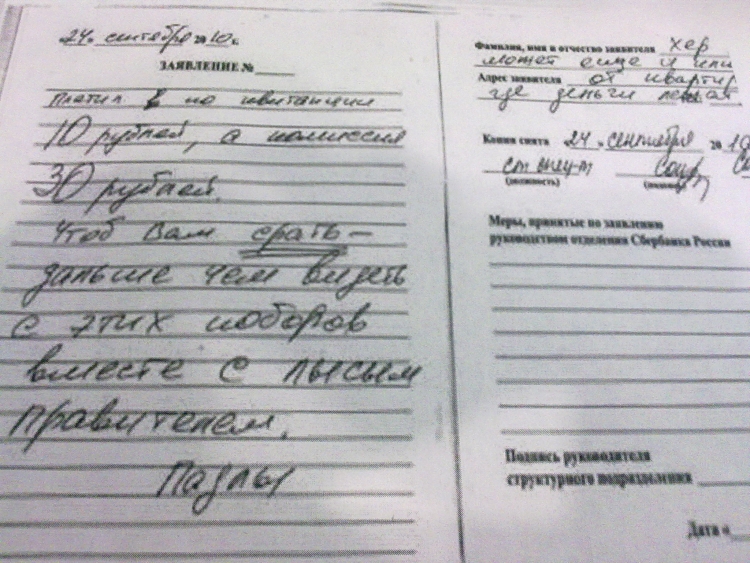 24 сентября 2010 г.
ЗАЯВЛЕНИЕ №
Платил по квитанции
10 рублей, а комиссия
30 рублей.
Чтоб Вам срать –
дальше чем видеть
с этих поборов
вместе с лысым
правителем.
Падлы
Фамилия, имя и отчество заявителя хер
может еще и или
Адрес заявителя от квартир
где деньги лежат.
Копия снята «24» сентября 20
(должность)
Меры, принятые по заявлению
руководством отделения Сбербанка России
Подпись руководителя
структурного подразделения
Дата «